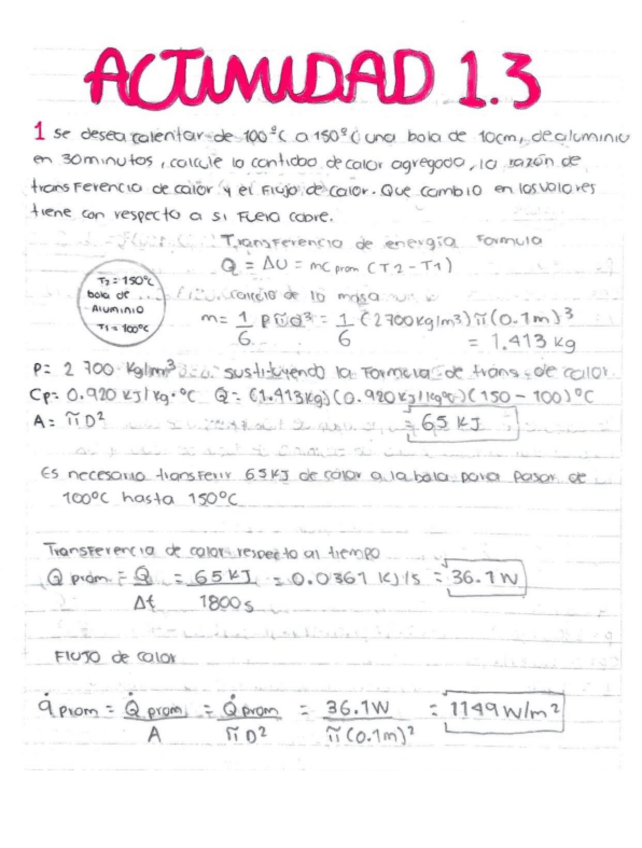 ACTIVIDAD 1.3
1 se desea calentar de 100°C a 150°C una bola de 10cm, de aluminio
en 30minutos, calcule la cantidad de calor agregado, la razón de
transferencia de calor y el Flujo de calor. Que cambio en los valores
tiene con respecto a si Fuera cobre.
Transferencia de energía Formula
Q = ΔU = mC prom (T2 - T1)
T2 = 150°C
bola de
Aluminio
T1 = 100°C
calculo de la masa
m = 1/6 ρπd³ = 1/6 (2700kg/m3)π(0.1m)³
= 1.413 kg
ρ= 2 700 Kg/m³ sustituyendo la Formula de trans. de calor
Cp= 0.920 KJ/kg·°C Q= (1.413kg)(0.920KJ/kg°C)(150 - 100)°C
A= πD² = 65 KJ
Es necesario transferir 65KJ de calor a la bola para pasar de
100°C hasta 150°C
Transferencia de calor respecto al tiempo
Q̇ prom = Q/Δt = 65KJ/1800s = 0.0361 KJ/s = 36.1W
FLUJO de calor
q̇ prom = Q̇ prom/A = Q̇ prom/πD² = 36.1W/π(0.1m)² = 1149W/m²